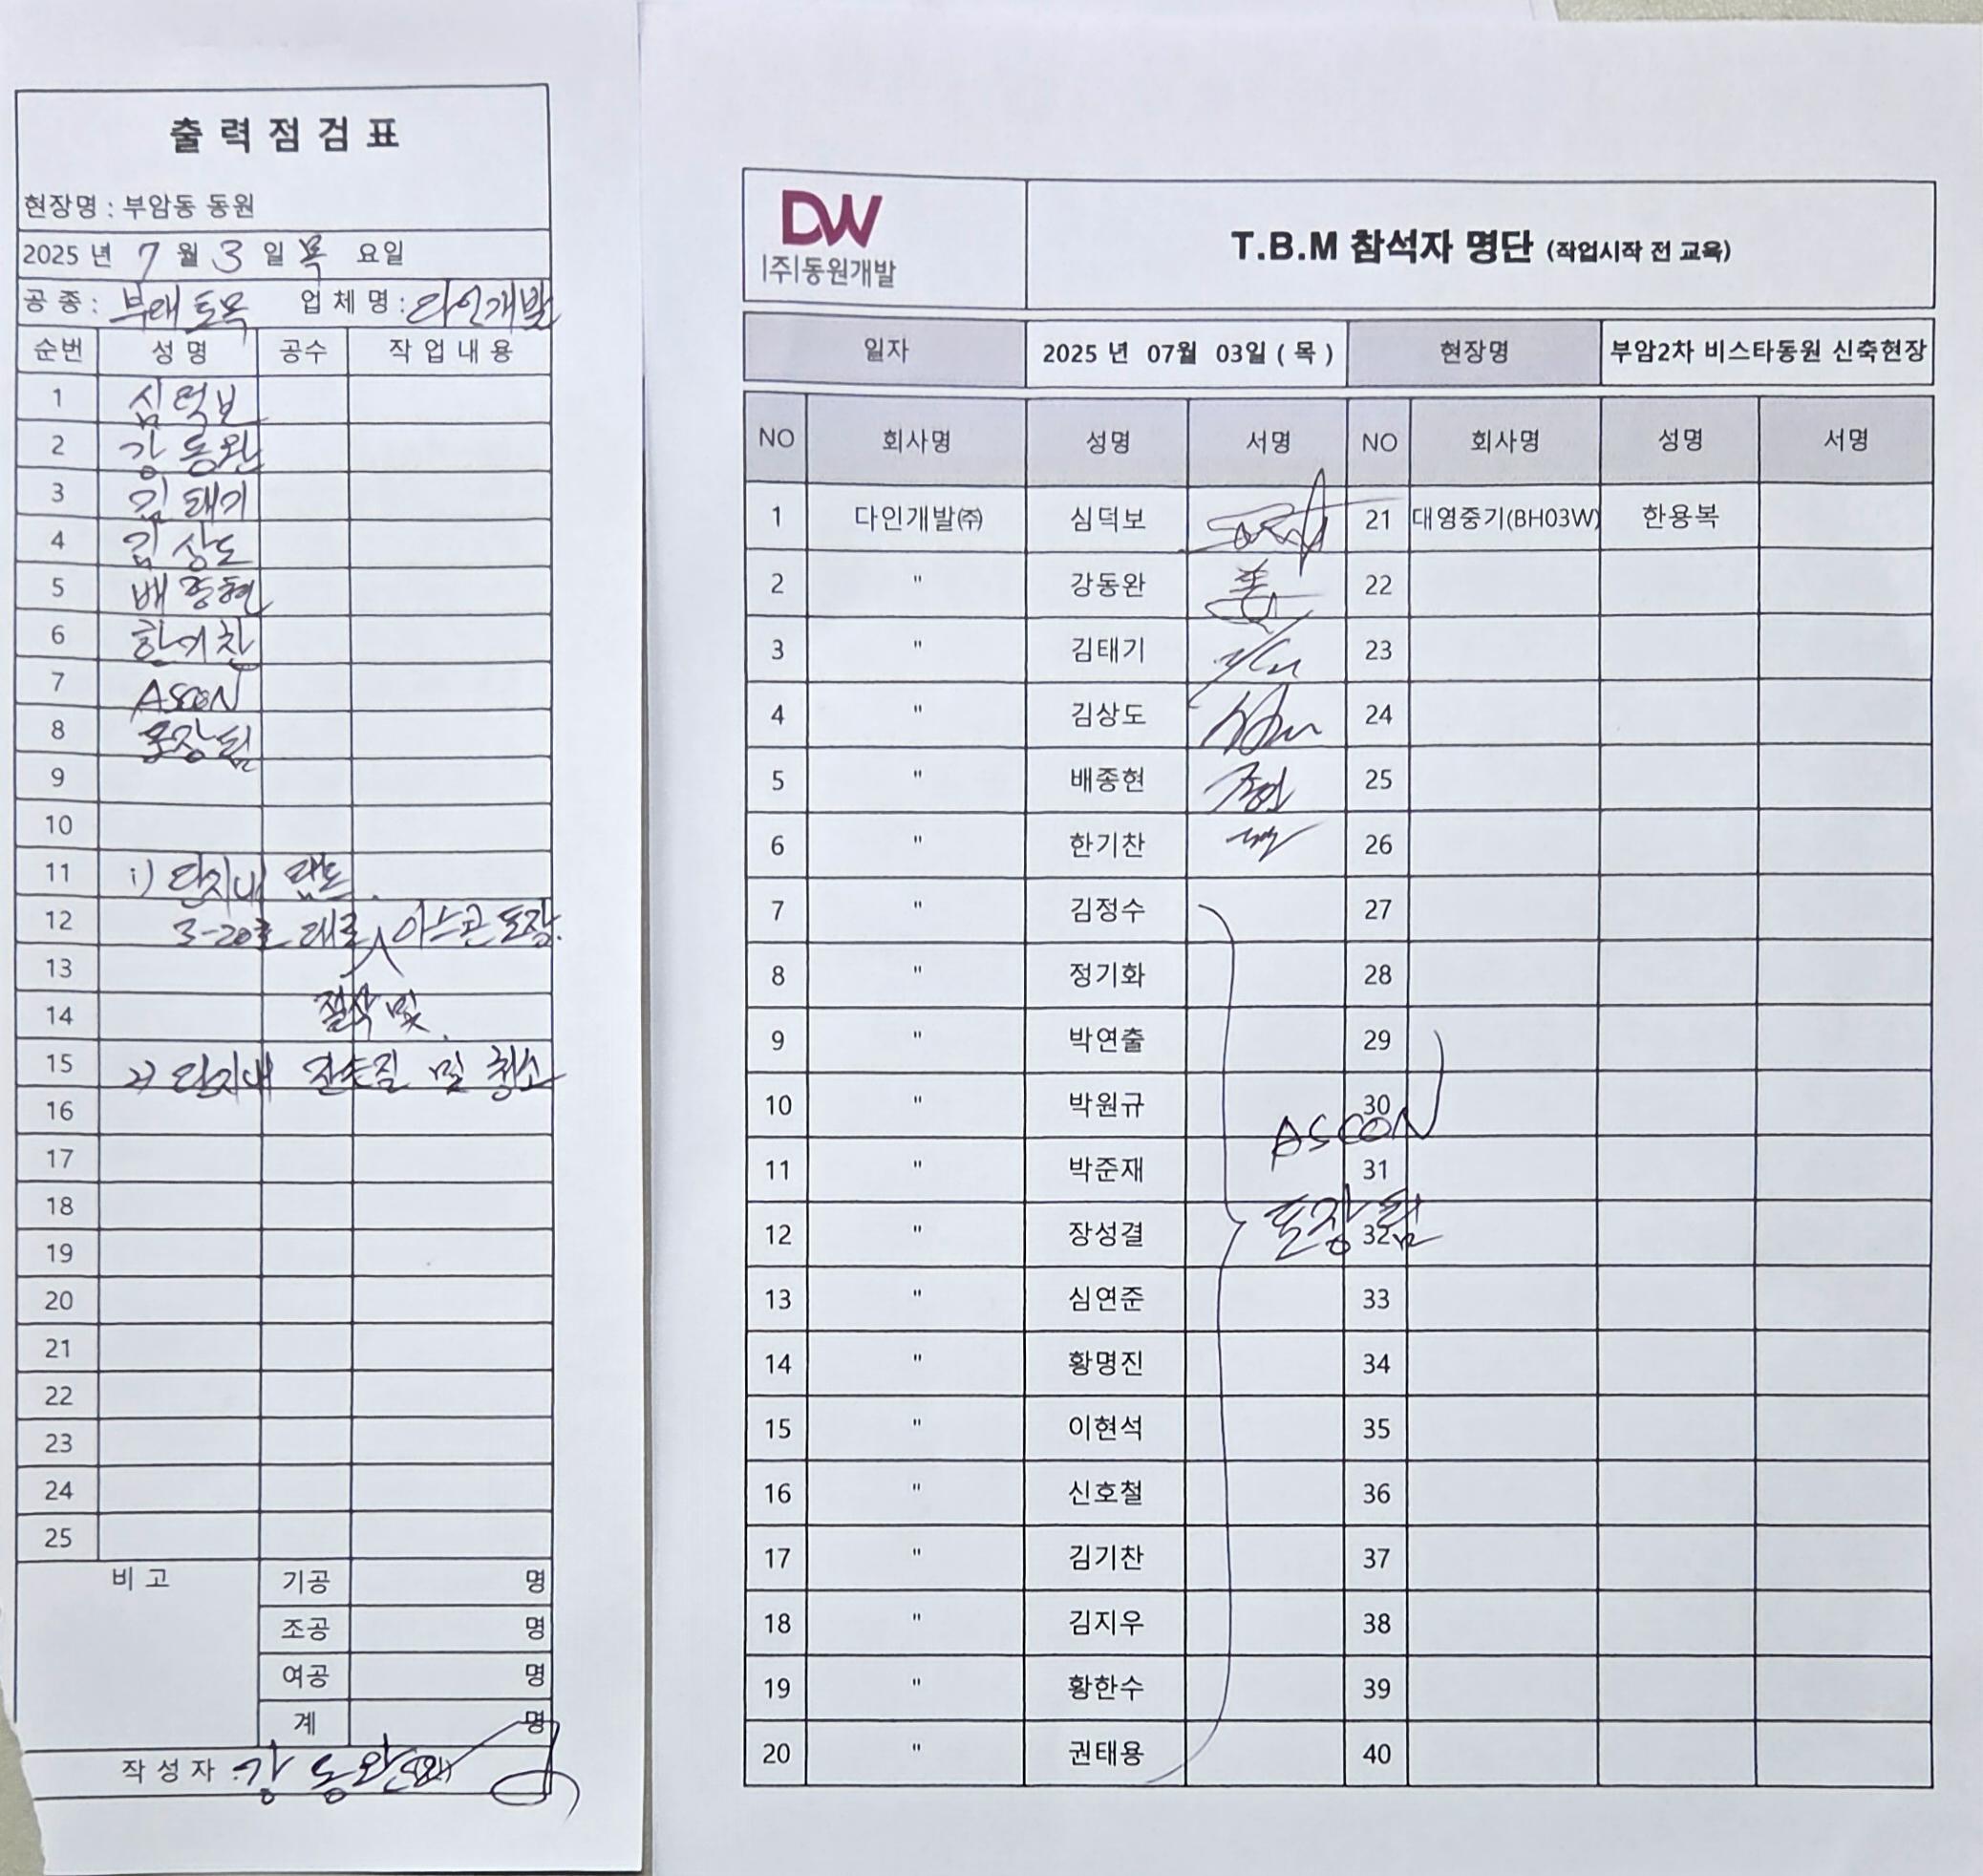 출력점검표
현장명 : 부암동 동원
2025 년 7 월 3 일 목 요일
공 종 : 부대토목 업 체 명 : 다인개발
순번 성 명 공수 작 업 내 용
1 심덕보
2 강동완
3 김태기
4 김상도
5 배종현
6 한기찬
7 ASCON
8 포장팀
9
10
11 1) 단지내
12 3-20호 대로 아스콘 포장.
13
14 절삭 및
15 2) 단지내 및 청소
16
17
18
19
20
21
22
23
24
25
비 고 기공 명
조공 명
여공 명
계 명
작 성 자 : 강동완
DW
|주|동원개발
T.B.M 참석자 명단 (작업시작 전 교육)
일자 2025 년 07월 03일 ( 목 ) 현장명 부암2차 비스타동원 신축현장
NO 회사명 성명 서명 NO 회사명 성명 서명
1 다인개발㈜ 심덕보 21 대영중기(BH03W) 한용복
2 " 강동완 22
3 " 김태기 23
4 " 김상도 24
5 " 배종현 종현 25
6 " 한기찬 26
7 " 김정수 27
8 " 정기화 28
9 " 박연출 29
10 " 박원규 ASCON 30
11 " 박준재 31
12 " 장성결 포장팀 32
13 " 심연준 33
14 " 황명진 34
15 " 이현석 35
16 " 신호철 36
17 " 김기찬 37
18 " 김지우 38
19 " 황한수 39
20 " 권태용 40